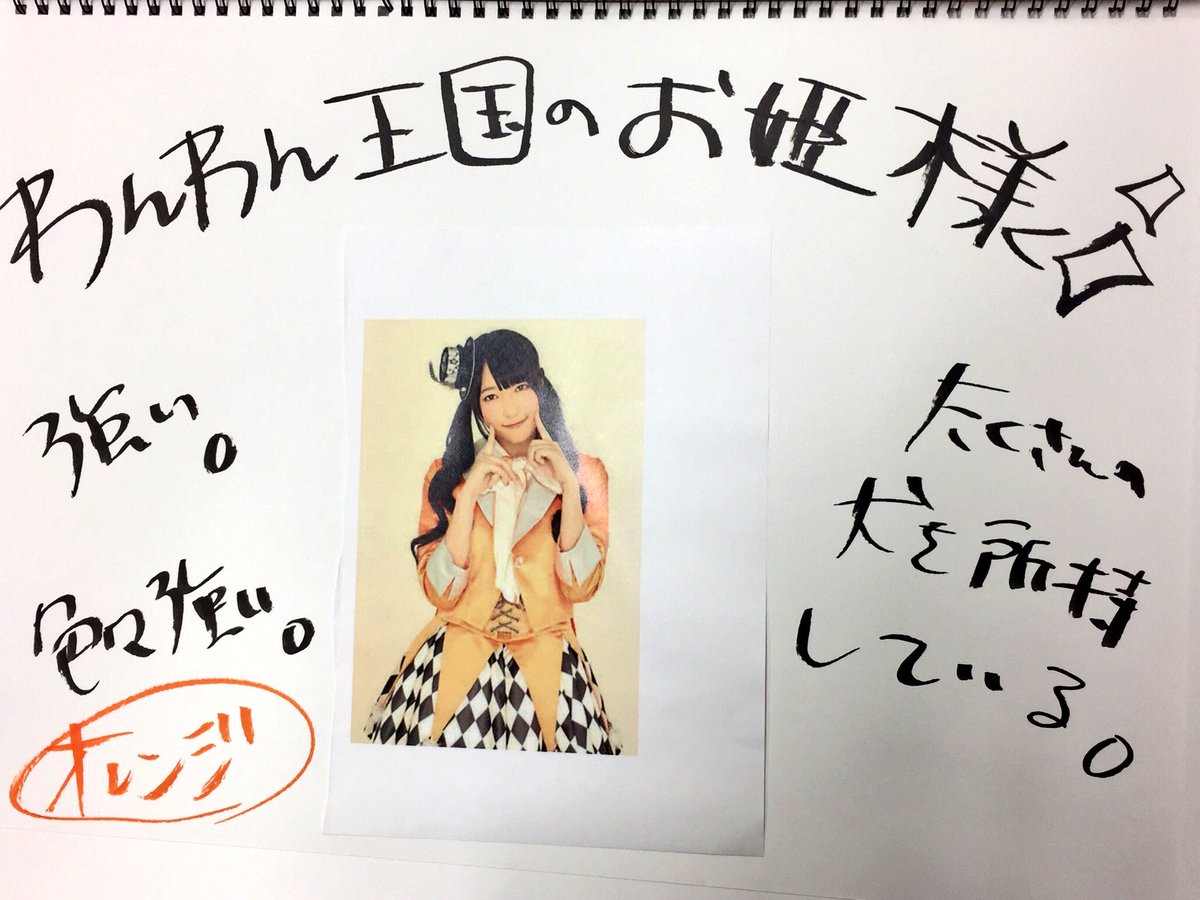 わんわん王国のお姫様
強い。
色々強い。
オレンジ
たくさんの
犬を所持
している。